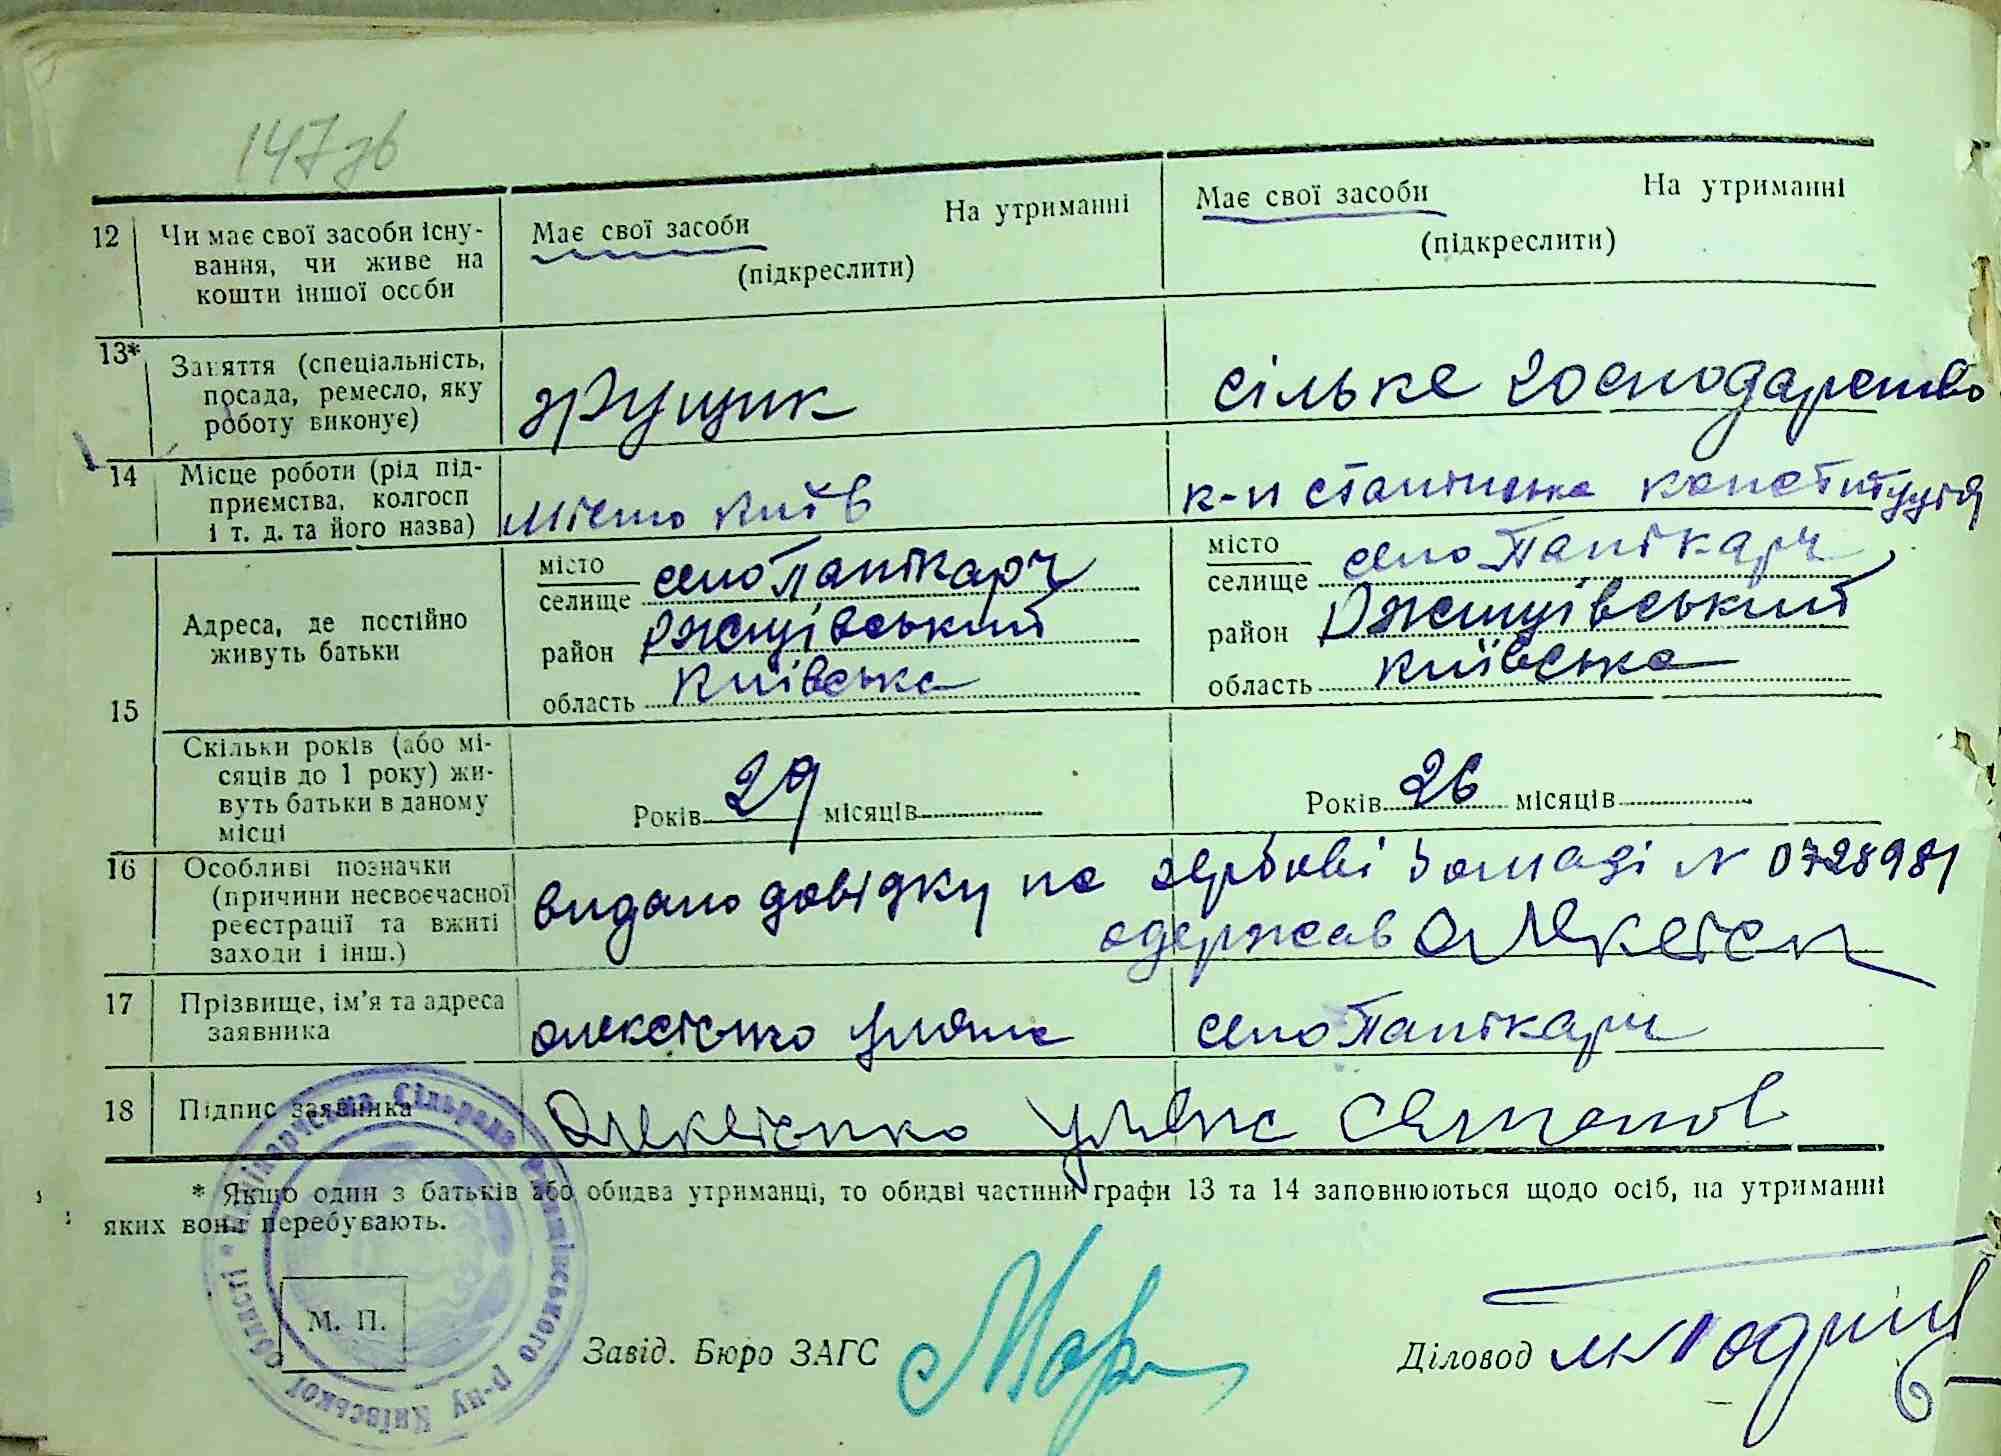 147зв
12 Чи має свої засоби існу-
вання, чи живе на
кошти іншої особи
Має свої засоби На утриманні
(підкреслити)
Має свої засоби На утриманні
(підкреслити)
13* Заняття (спеціальність,
посада, ремесло, яку
роботу виконує)
грущик
сільке господарство
14 Місце роботи (рід під-
приємства, колгосп
і т. д. та його назва)
місто Київ
к-п сталінська конституція
15
Адреса, де постійно
живуть батьки
місто
селище село Панікарч
район Ржищівський
область Київська
місто
селище село Панікарч
район Ржищівський
область Київська
Скільки років (або мі-
сяців до 1 року) жи-
вуть батьки в даному
місці
Років 29 місяців
Років 26 місяців
16 Особливі позначки
(причини несвоєчасної
реєстрації та вжиті
заходи і інш.)
видано довідку на гербові бомазі N 0728981
одержав Олексієн
17 Прізвище, ім'я та адреса
заявника
олексієнко уляна село Панікарч
18 Підпис заявника
Олексієнко уляна
* Якщо один з батьків або обидва утриманці, то обидві частини графи 13 та 14 заповнюються щодо осіб, на утриманні
яких вони перебувають.
М. П.
Панікарчська Сільрада Ржищівського р-ну Київської області *
Завід. Бюро ЗАГС
Діловод